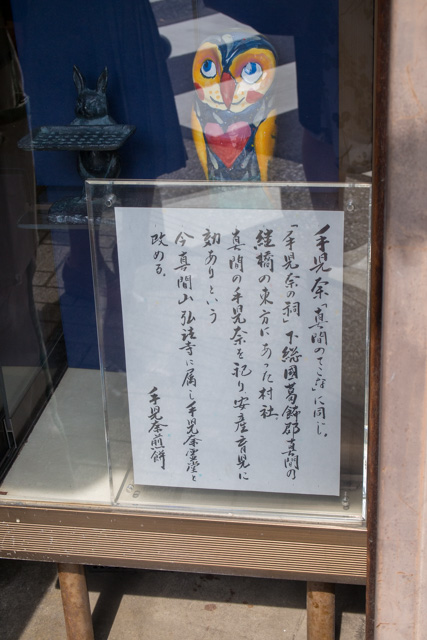 手児奈っ真間のてこな」に同じ。
「手児奈の祠」下総國葛飾郡真間の
継橋の東方にあった村社。
真間の手児奈を祀り安産育児に
効ありという
今真間山弘法寺に属し手児奈霊堂と
改める。
手児奈煎餅